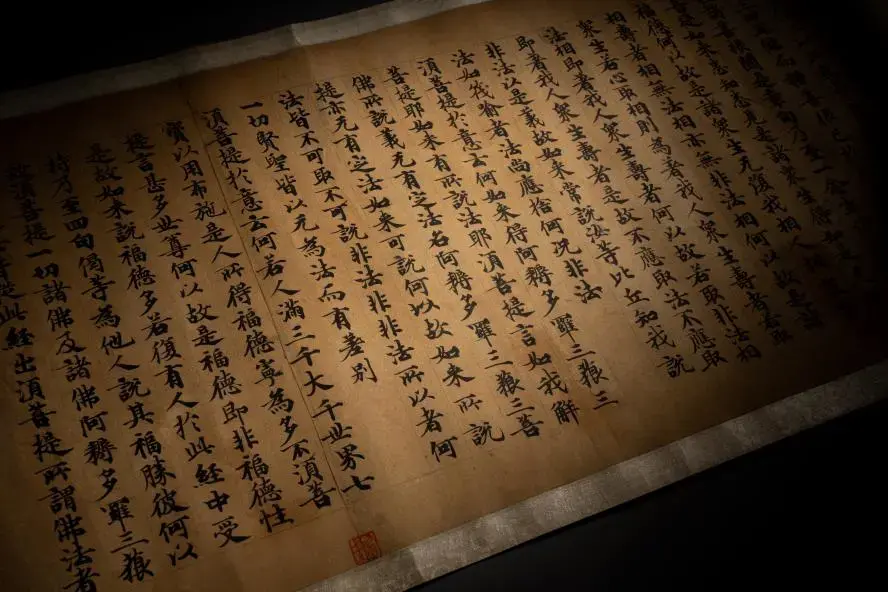 福德何以故是諸眾生无復我相人
相壽者相無法相亦無非法相何以故是諸
眾生若心取相則為著我人眾生壽者若取
法相即著我人眾生壽者何以故若取非法相
即著我人眾生壽者是故不應取法不應取
非法以是義故如來常說汝等比丘知我說
法如筏喻者法尚應捨何況非法
須菩提於意云何如來得阿耨多羅三藐三
菩提耶如來有所說法耶須菩提言如我解
佛所說義无有定法名阿耨多羅三藐三菩
提亦无有定法如來可說何以故如來所說
法皆不可取不可說非法非非法所以者何
一切賢聖皆以无為法而有差別
須菩提於意云何若人滿三千大千世界七
寶以用布施是人所得福德寧為多不須菩
提言甚多世尊何以故是福德即非福德性
是故如來說福德多若復有人於此經中受
持乃至四句偈等為他人說其福勝彼何以
故須菩提一切諸佛及諸佛阿耨多羅三藐
皆從此經出須菩提所謂佛法者